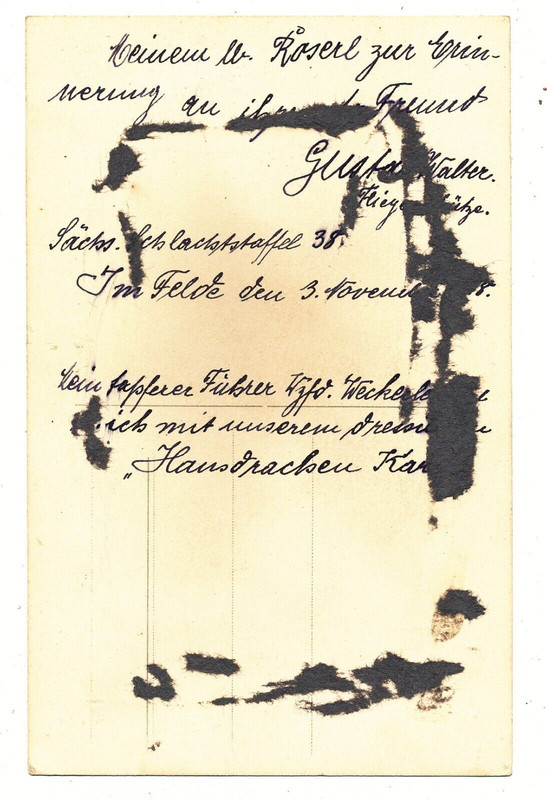 Meinem lb. Röserl zur Erin-
nerung an Freund
Gusta Walter.
Sächs. Schlachtstaffel 38.
Im Felde den 3. Novem 8.
Mein tapferer Führer Vzfd. Weckerl
ich mit unserem
"Hausdrachen Kar